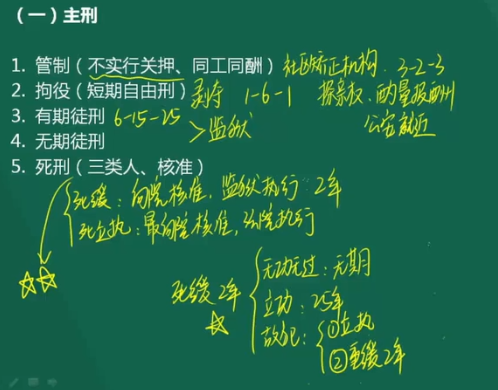 （一）主刑
1. 管制（不实行关押、同工同酬）社区矫正机构. 3-2-3
2. 拘役（短期自由刑）剥夺 1-6-1 探亲权. 酌量报酬
公安就近
3. 有期徒刑 6-15-25
>监狱
4. 无期徒刑
5. 死刑（三类人、核准）
死缓：高院核准，监狱执行 2年
死立执：最高院核准，法院执行
死缓2年
无功无过：无期
立功：25年
故犯：①立执
②重缓2年